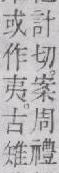 計切案周禮
或作夷古雉